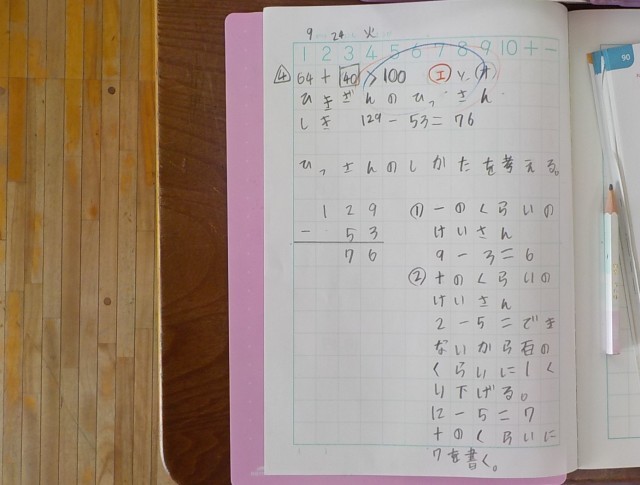 9 24 火
1 2 3 4 5 6 7 8 9 10 + −
④ 64 + 40 > 100 エ
ひきざんのひっさん
しき 129 − 53 = 76
ひっさんのしかたを考える。
129
− 53
76
① 一のくらいの
けいさん
9 − 3 = 6
② 十のくらいの
けいさん
2 − 5 = でき
ないから百の
くらいに1く
り下げる。
12 − 5 = 7
十のくらいに
7を書く。
90